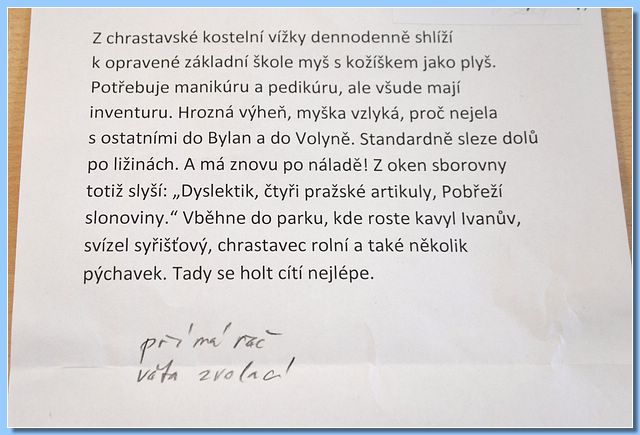 Z chrastavské kostelní vížky dennodenně shlíží
k opravené základní škole myš s kožíškem jako plyš.
Potřebuje manikúru a pedikúru, ale všude mají
inventuru. Hrozná výheň, myška vzlyká, proč nejela
s ostatními do Bylan a do Volyně. Standardně sleze dolů
po ližinách. A má znovu po náladě! Z oken sborovny
totiž slyší: „Dyslektik, čtyři pražské artikuly, Pobřeží
slonoviny.“ Vběhne do parku, kde roste kavyl Ivanův,
svízel syřišťový, chrastavec rolní a také několik
pýchavek. Tady se holt cítí nejlépe.
přímá řeč
věta zvolací